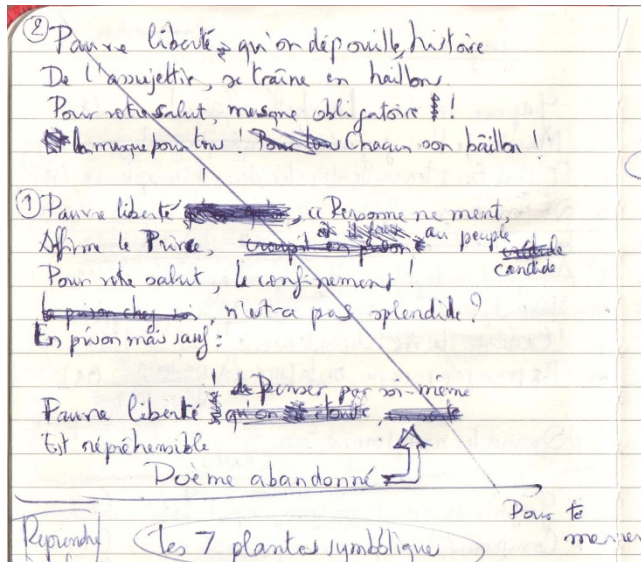 ② Pauvre liberté qu'on dépouille, histoire
De l'assujettir, se traîne en haillon.
Pour votre salut, masque obligatoire !
Un masque pour tous ! Pour tous Chacun son bâillon !
① Pauvre liberté , « Personne ne ment,
Affirme le Prince, croupit en prison au peuple
crédule
candide
Pour votre salut, le confinement !
La prison chez soi, n'est-ce pas splendide ?
En prison mais sauf :
! de Penser par soi-même
Pauvre liberté qu'on étouffe,
Est répréhensible
Poème abandonné
Pour te
Reprendre
Les 7 plantes symbolique